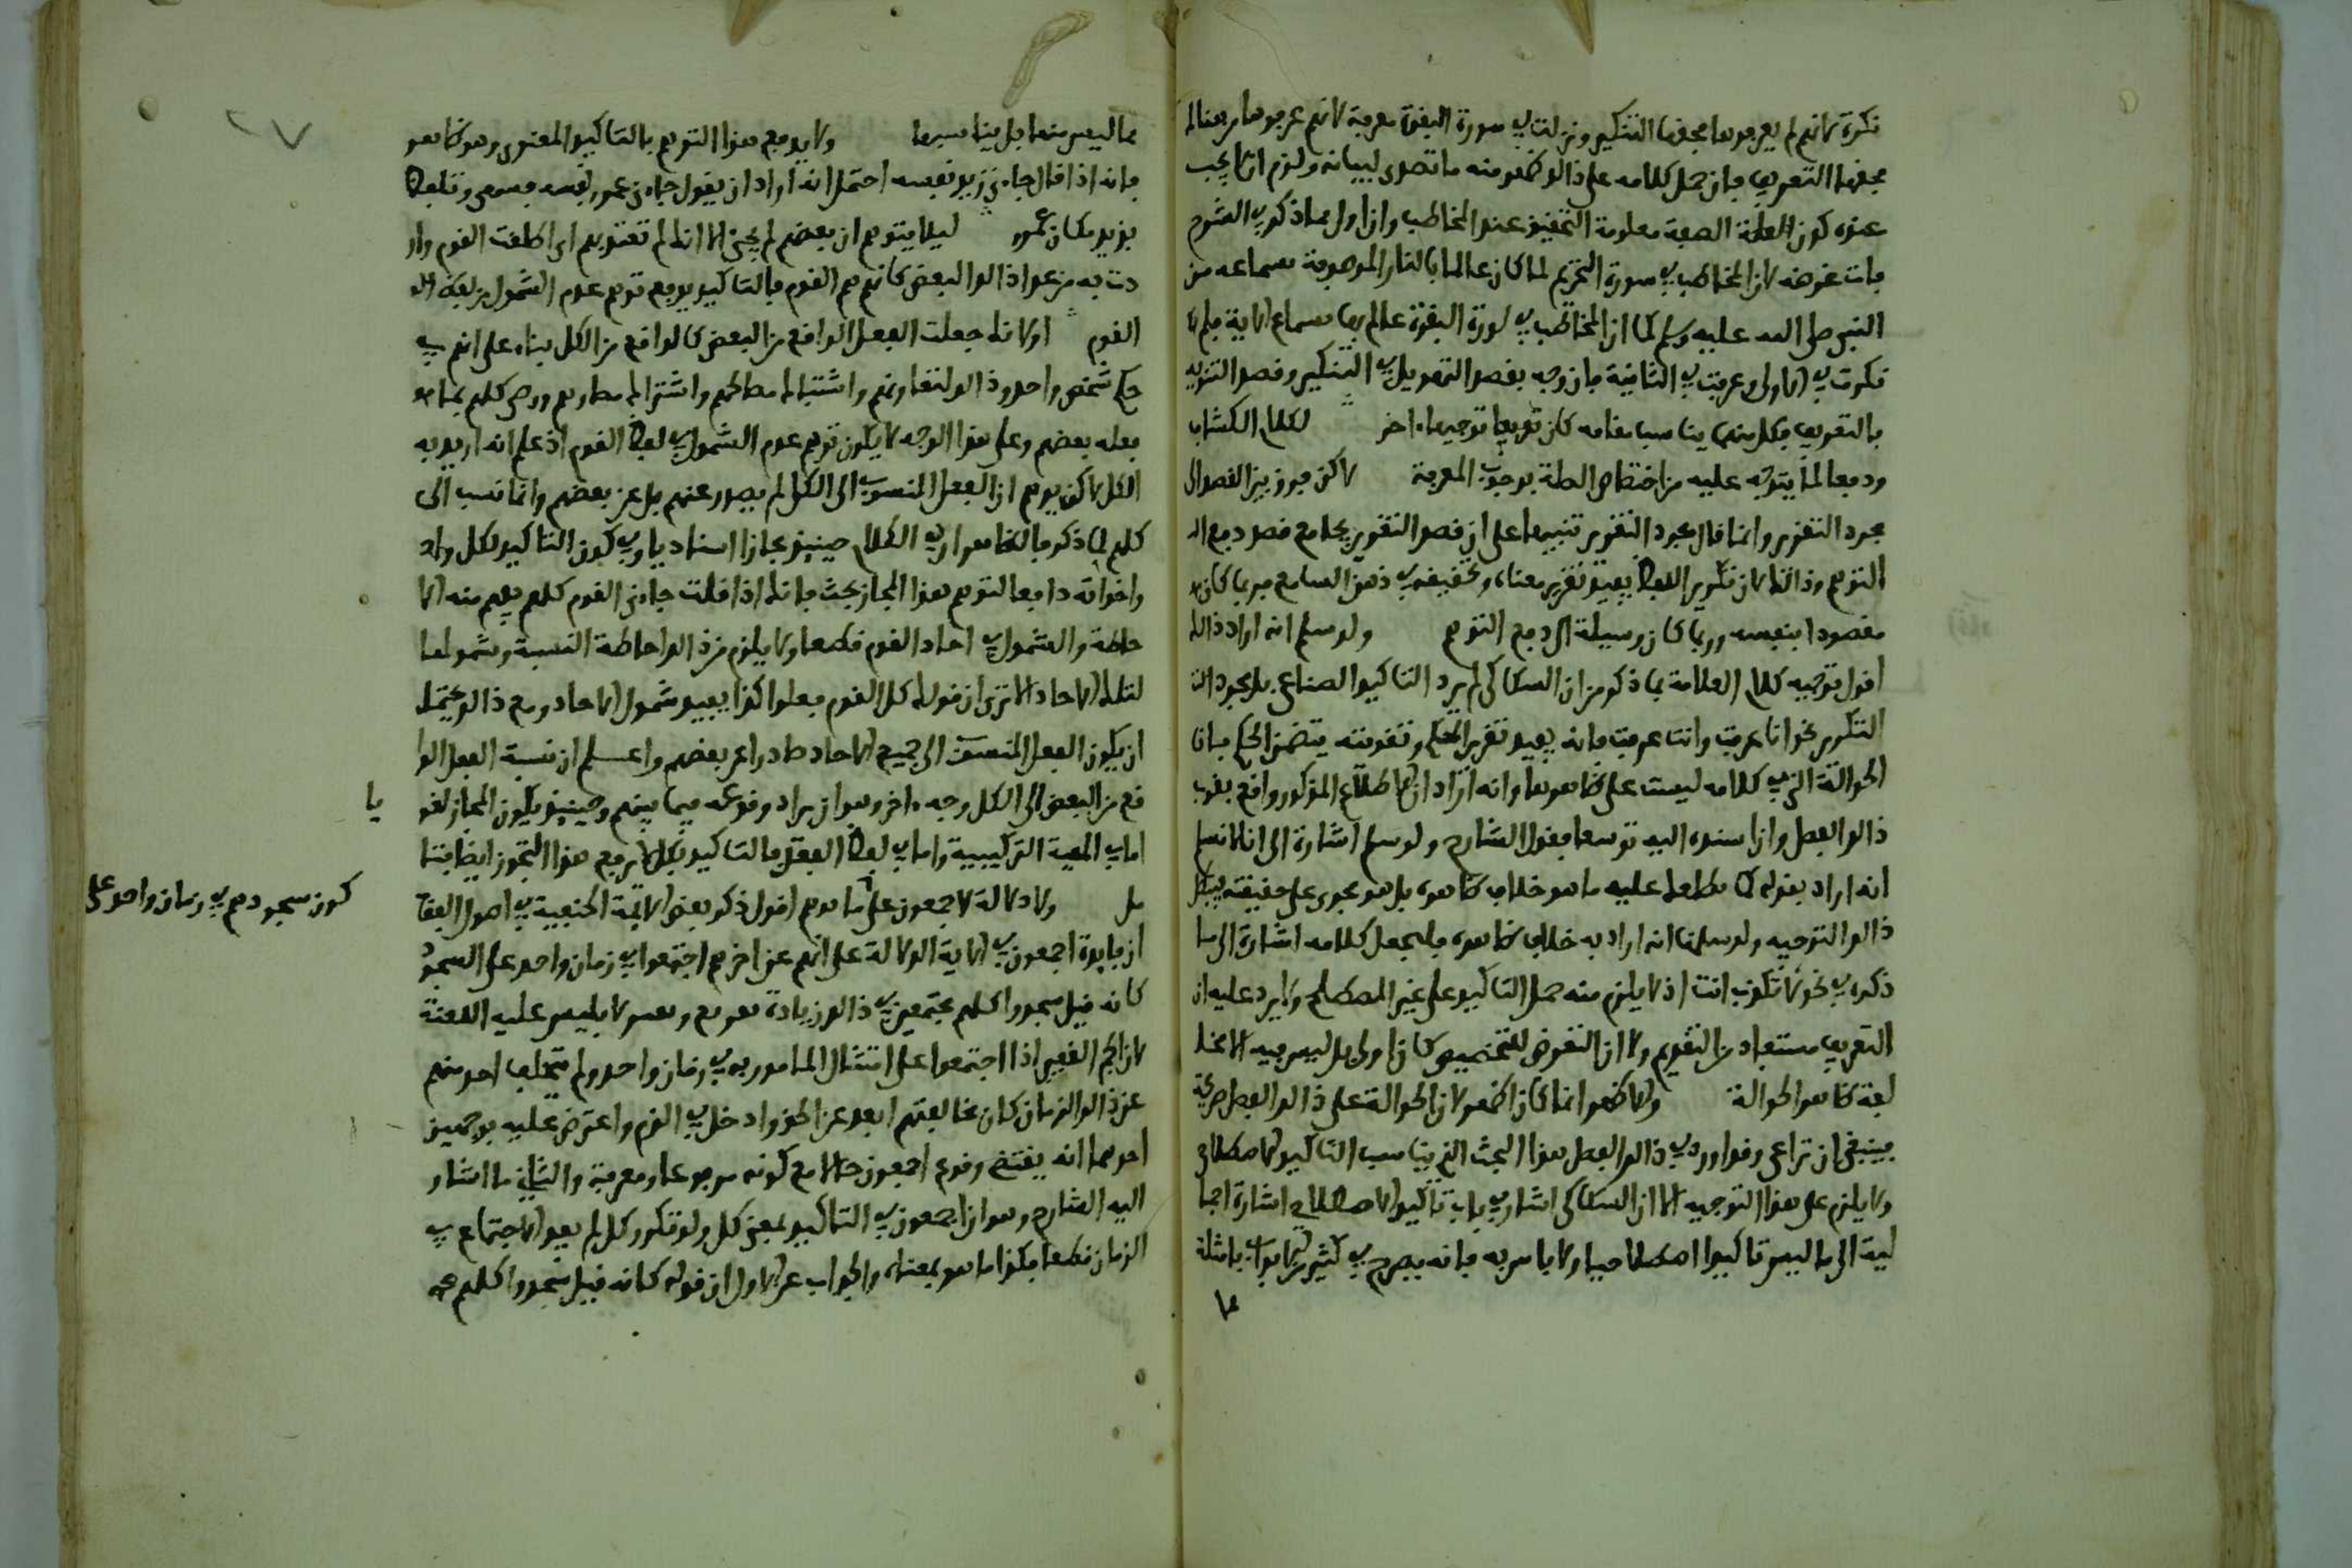 نكرة لانهم لم يعرفوها فحقها التنكير ونزلت في سورة البقرة معرفة لانهم عرفوها من هنالك
فحقها التعريف فان حمل كلامه على ذالك ظهر منه ما تصدى لبيانه ولزم ان لا يجب
عنده كون الصلة الصفة معلومة التحقيق عند المخاطب وان اول بما ذكر في الشرح
فات غرضه لان المخاطب في سورة التحريم لما كان عالما بالنار الموصوفة بسماعه من
النبي صلى الله عليه وسلم كما ان المخاطب في سورة البقرة عالم بها بسماع الاية فلم لا
نكرت في الاولى وعرفت في الثانية فان وجه بقصد التهويل في التنكير وقصد التنويه
بالتعريف فكل منهما يناسب مقامه كان توجيها اخر لكلام الكشاف
ودفعا لما يتوجه عليه من اختصاص الصلة بوجوب المعرفة لاكن فرق بين القصد الى
مجرد التقرير وانما قال مجرد التقرير تنبيها على ان قصد التقرير يجامع قصد دفع الـ
التوهم وذالك لان تكرير اللفظ يفيد تقرير معناه وتحقيقه في ذهن السامع فربما كان هو
مقصودا بنفسه وربما كان وسيلة الى دفع التوهم ولو سلم انه اراد ذالك
اقول توجيه كلام العلامة بما ذكر من ان السكاكي لم يرد التاكيد الصناعي بل مجرد الت
التكرير نحو انا عرفت وانت عرفت فانه يفيد تقرير الحكم وتقويته يتضمن الحكم بان
الحوالة التي في كلامه ليست على ظاهرها وانه اراد ان الاطلاع المذكور واقع بقرب
ذالك الفصل وان اسنده اليه توسعا فقول الشارح ولو سلم اشارة الى انا لا نسلم
انه اراد بقوله كما يطلعك عليه ما هو خلاف ظاهره بل هو مجرى على حقيقته فيبطل
ذالك التوجيه ولو سلمنا انه اراد به خلاف ظاهره فليجعل كلامه اشارة الى ما
ذكره في نحو لا تكذب انت اذ لا يلزم منه حمل التاكيد على غير المصطلح ولا يرد عليه ان
التعريف مستفاد من التقديم ولا ان التعرض للتخصيص كان اولى بل ليس فيه الا مخا
لفة ظاهر الحوالة ولا ظهر انما كان اظهر لان الحوالة على ذالك الفصل صريحة
فينبغي ان تراعى وقد اورد في ذالك الفصل هذا البحث الذي يناسب التاكيد الاصطلاحي
ولا يلزم على هذا التوجيه الا ان السكاكي اشار في باب تاكيد الاصطلاحي اشارة اجما
لية الى ما ليس تاكيدا اصطلاحيا ولا باس به فانه يصرح في كثير من الابواب بامثلة
مما ليس منها بل يناسبها ولا يدفع هذا التوهم بالتاكيد المعنوي وهو ظاهر
فانه اذا قال جاءني زيد نفسه احتمل انه اراد ان يقول جاءني عمرو نفسه فسهى وتلفظ
بزيد مكان عمرو ليلا يتوهم ان بعضهم لم يجئ الا انك لم تعتد بهم اي اطلقت القوم وار
دت به من عدا ذالك البعض كانهم هم القوم فبالتاكيد يدفع توهم عدم الشمول من لفظ الـ
القوم او انك جعلت الفعل الواقع من البعض كالواقع من الكل بناء على انهم في
حكم شخص واحد وذالك لتعاونهم واشتباك مصالحهم واشتراك مضارهم ورضى كلهم بما هو
فعله بعضهم وعلى هذا الوجه لا يكون توهم عدم الشمول في لفظ القوم اذ علم انه اريد به
الكل لاكن يوهم ان الفعل المنسوب الى الكل لم يصدر عنهم بل عن بعضهم وانما نسب الى
كلهم لما ذكر فالظاهر ان في الكلام حينئذ مجازا اسناديا وفي كون التاكيد بكل واحد
واخواته دافعا لتوهم هذا المجاز بحث فانك اذا قلت جاءني القوم كلهم يفهم منه الا
حاطة والشمول في احاد القوم قطعا ولا يلزم من ذالك احاطة النسبة وشمولها
لتلك الاحاد الا ترى ان قولك كل القوم فعلوا كذا يفيد شمول الاحاد ومع ذالك يحتمل
ان يكون الفعل المنسوب الى جميع الاحاد صادرا عن بعضهم واعلم ان نسبة الفعل الوا
قع من البعض الى الكل وجه اخر وهو ان يراد وقوعه فيما بينهم وحينئذ يكون المجاز لغو
يا
اما في الهيئة التركيبية واما في لفظ الفعل فالتاكيد بكل لا يرفع هذا التجوز ايضا فتا
مل ولا دلالة لاجمعون على ما يوهم اقول ذكر بعض الائمة الحنفية في اصول الفقه
ان فايدة اجمعون في الاية الدلالة على انهم عن اخرهم اجتمعوا في زمان واحد على السجود
كون سجودهم في زمان واحد على
كانه قيل سجدوا كلهم مجتمعين في ذالك زيادة تقريع وتعسير لابليس عليه اللعنة
لان الجم الغفير اذا اجتمعوا على امتثال المامور به في زمان واحد ولم يتخلف احد منهم
عن ذالك الزمان كان مخالفتهم ابعد عن الحق وادخل في الذم واعترض عليه بوجهين
احدهما انه يقتضي وقوع اجمعون حالا مع كونه مرفوعا ومعرفة والثاني ما اشار
اليه الشارح وهو ان اجمعون في التاكيد بمعنى كل ولو تكرر كل لم يفد الاجتماع في
الزمان قطعا فكذا ما هو بمعناه والجواب عن الاول ان قوله كانه قيل سجدوا كلهم مجـ